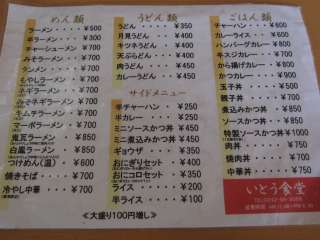 めん類
ラーメン ・・・¥500
ネギラーメン ・・・¥300
チャーシューメン ¥700
みそラーメン ・・¥700
もやしラーメン ¥700
みそネギラーメン ¥700
キムチラーメン ¥700
マーボラーメン ¥700
鬼瓦ラーメン ¥850
白鳳ラーメン ・・¥850
つけめん(温) ¥600
焼きそば ・・・¥700
冷やし中華 ・・¥700
うどん類
うどん ・・・¥350
月見うどん ・・¥400
キツネうどん ・¥400
天ぷらうどん ・¥400
肉うどん ・・・¥400
カレーうどん ・¥450
サイドメニュー
半チャーハン ・¥250
半カレー ・・・¥250
ミニソースかつ丼 ¥450
ミニ煮込みかつ丼 ¥450
ギョウザ ・・・¥350
おにぎりセット ¥200
おにコロセット ¥350
ライス ・・・¥150
半ライス ・・・¥100
≪大盛り100円増し≫
ごはん類
チャーハン ・・¥600
カレーライス ・¥600
ハンバーグカレー ¥800
牛スジカレー ・¥700
から揚げカレー ¥800
かつカレー ・・¥900
玉子丼 ・・・¥550
親子丼 ・・・¥700
煮込みかつ丼 ¥850
ソースかつ丼 ¥850
特製ソースかつ丼 ¥1000
牛丼 ・・・¥700
焼肉丼 ・・・¥700
中華丼 ・・・¥750
いとう食堂